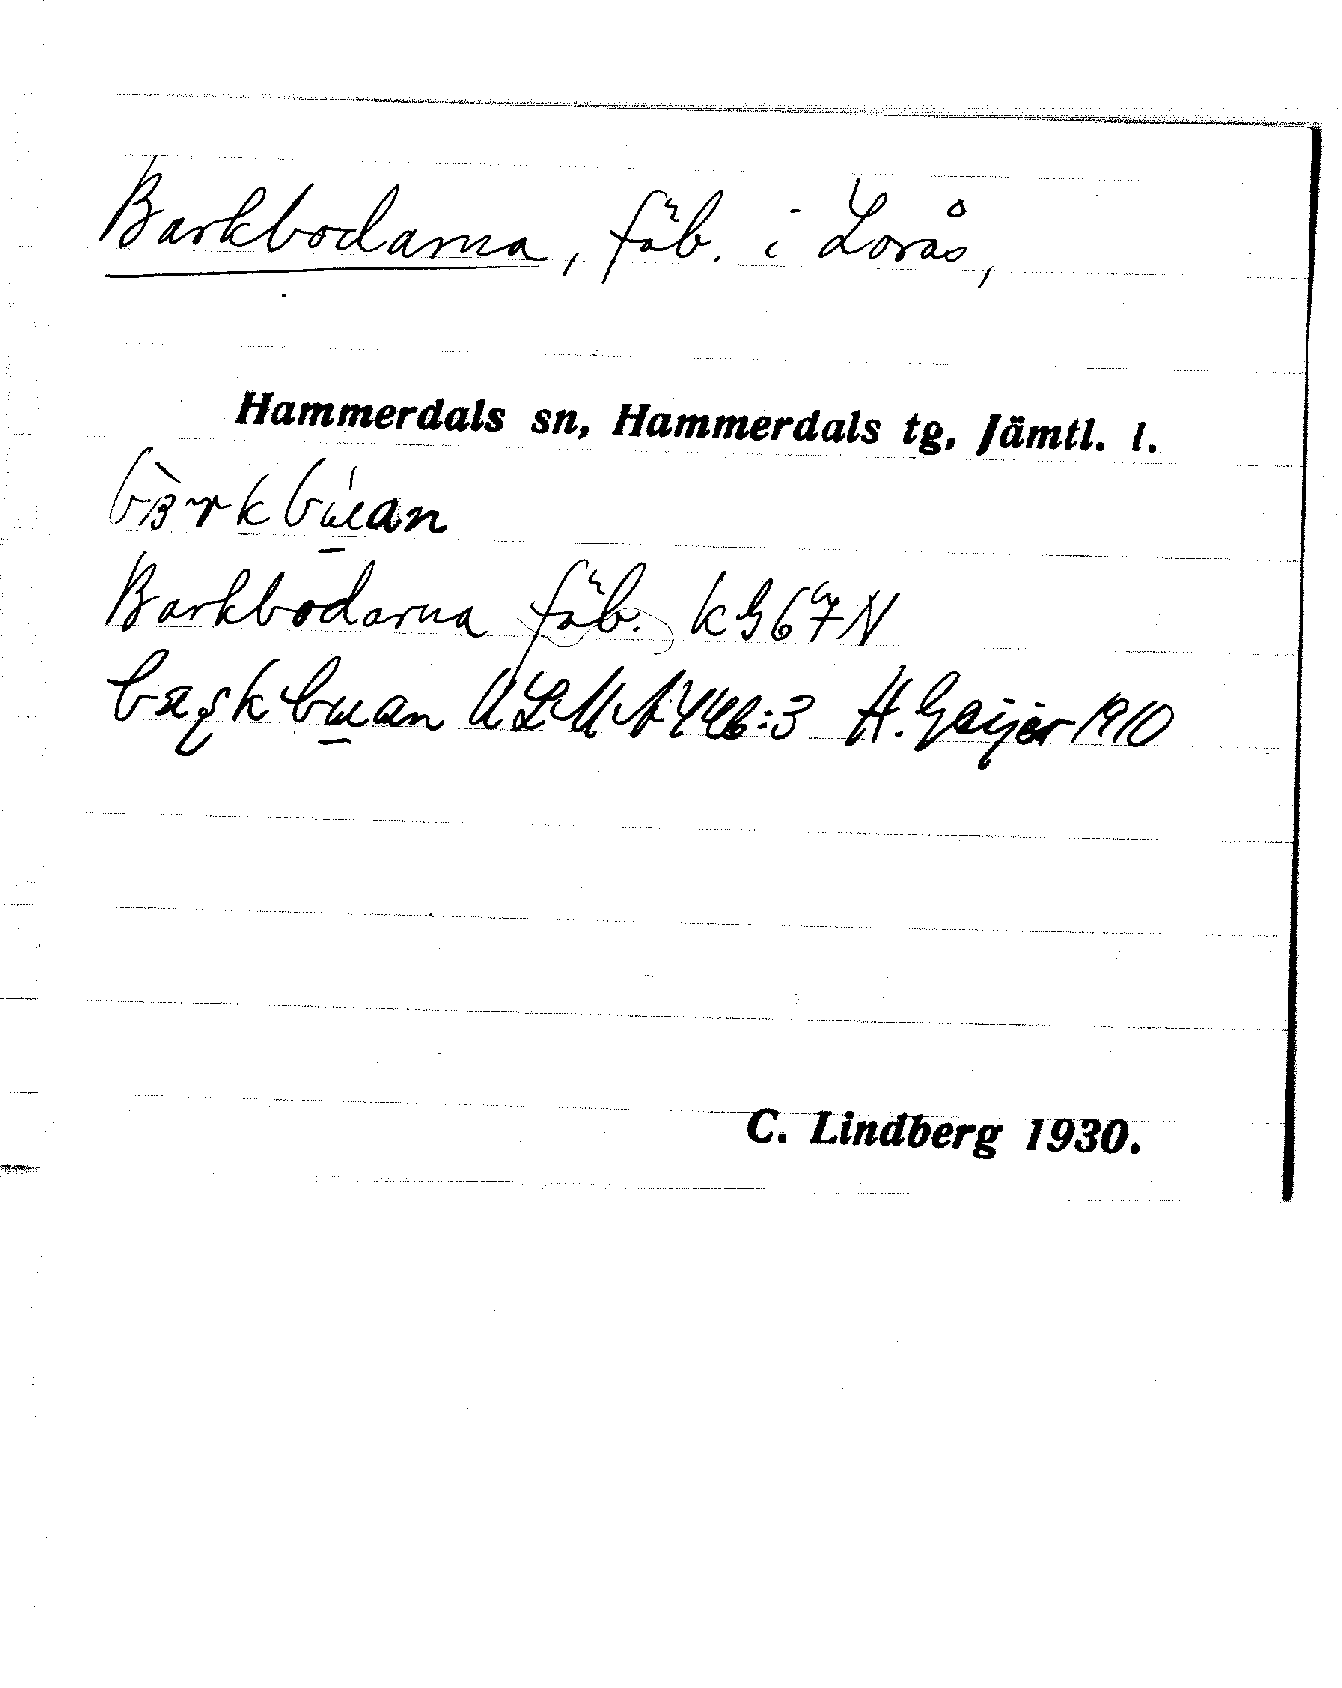 Barkbodarna, fäb. i Lorås,
Hammerdals sn, Hammerdals tg, Jämtl. l.
Barkbodarna fäb. kG67N
ULMA 446:3 H. Geijer 1910
C. Lindberg 1930.